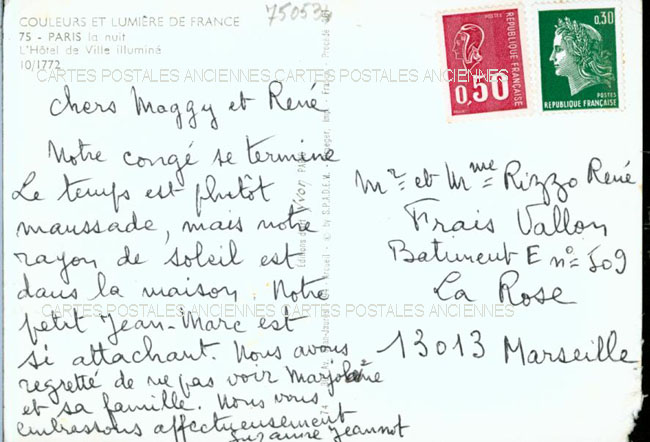 COULEURS ET LUMIÈRE DE FRANCE
75 - PARIS la nuit
L'Hôtel de Ville illuminé
10/1772
75053
CARTES POSTALES ANCIENNES CARTES POSTALES ANCIENNES CARTES POSTALES ANCIENNES
chers Maggy et René
Notre congé se termine
Le temps est plutôt
maussade, mais notre
rayon de soleil est
dans la maison. Notre
petit Jean-Marc est
si attachant. Nous avons
regretté de ne pas voir Marjolaine
et sa famille. Nous vous
embrassons affectueusement
Suzanne Jeannot
CARTES POSTALES ANCIENNES CARTES POSTALES ANCIENNES CARTES POSTALES ANCIENNES
Editions d'art Yvon PARIS
S.P.A.D.E.M.
0,50
RÉPUBLIQUE FRANÇAISE
POSTES
0,30
POSTES
RÉPUBLIQUE FRANÇAISE
Mr et Mme Rizzo René
Frais Vallon
Batiment E n° 509
La Rose
13013 Marseille